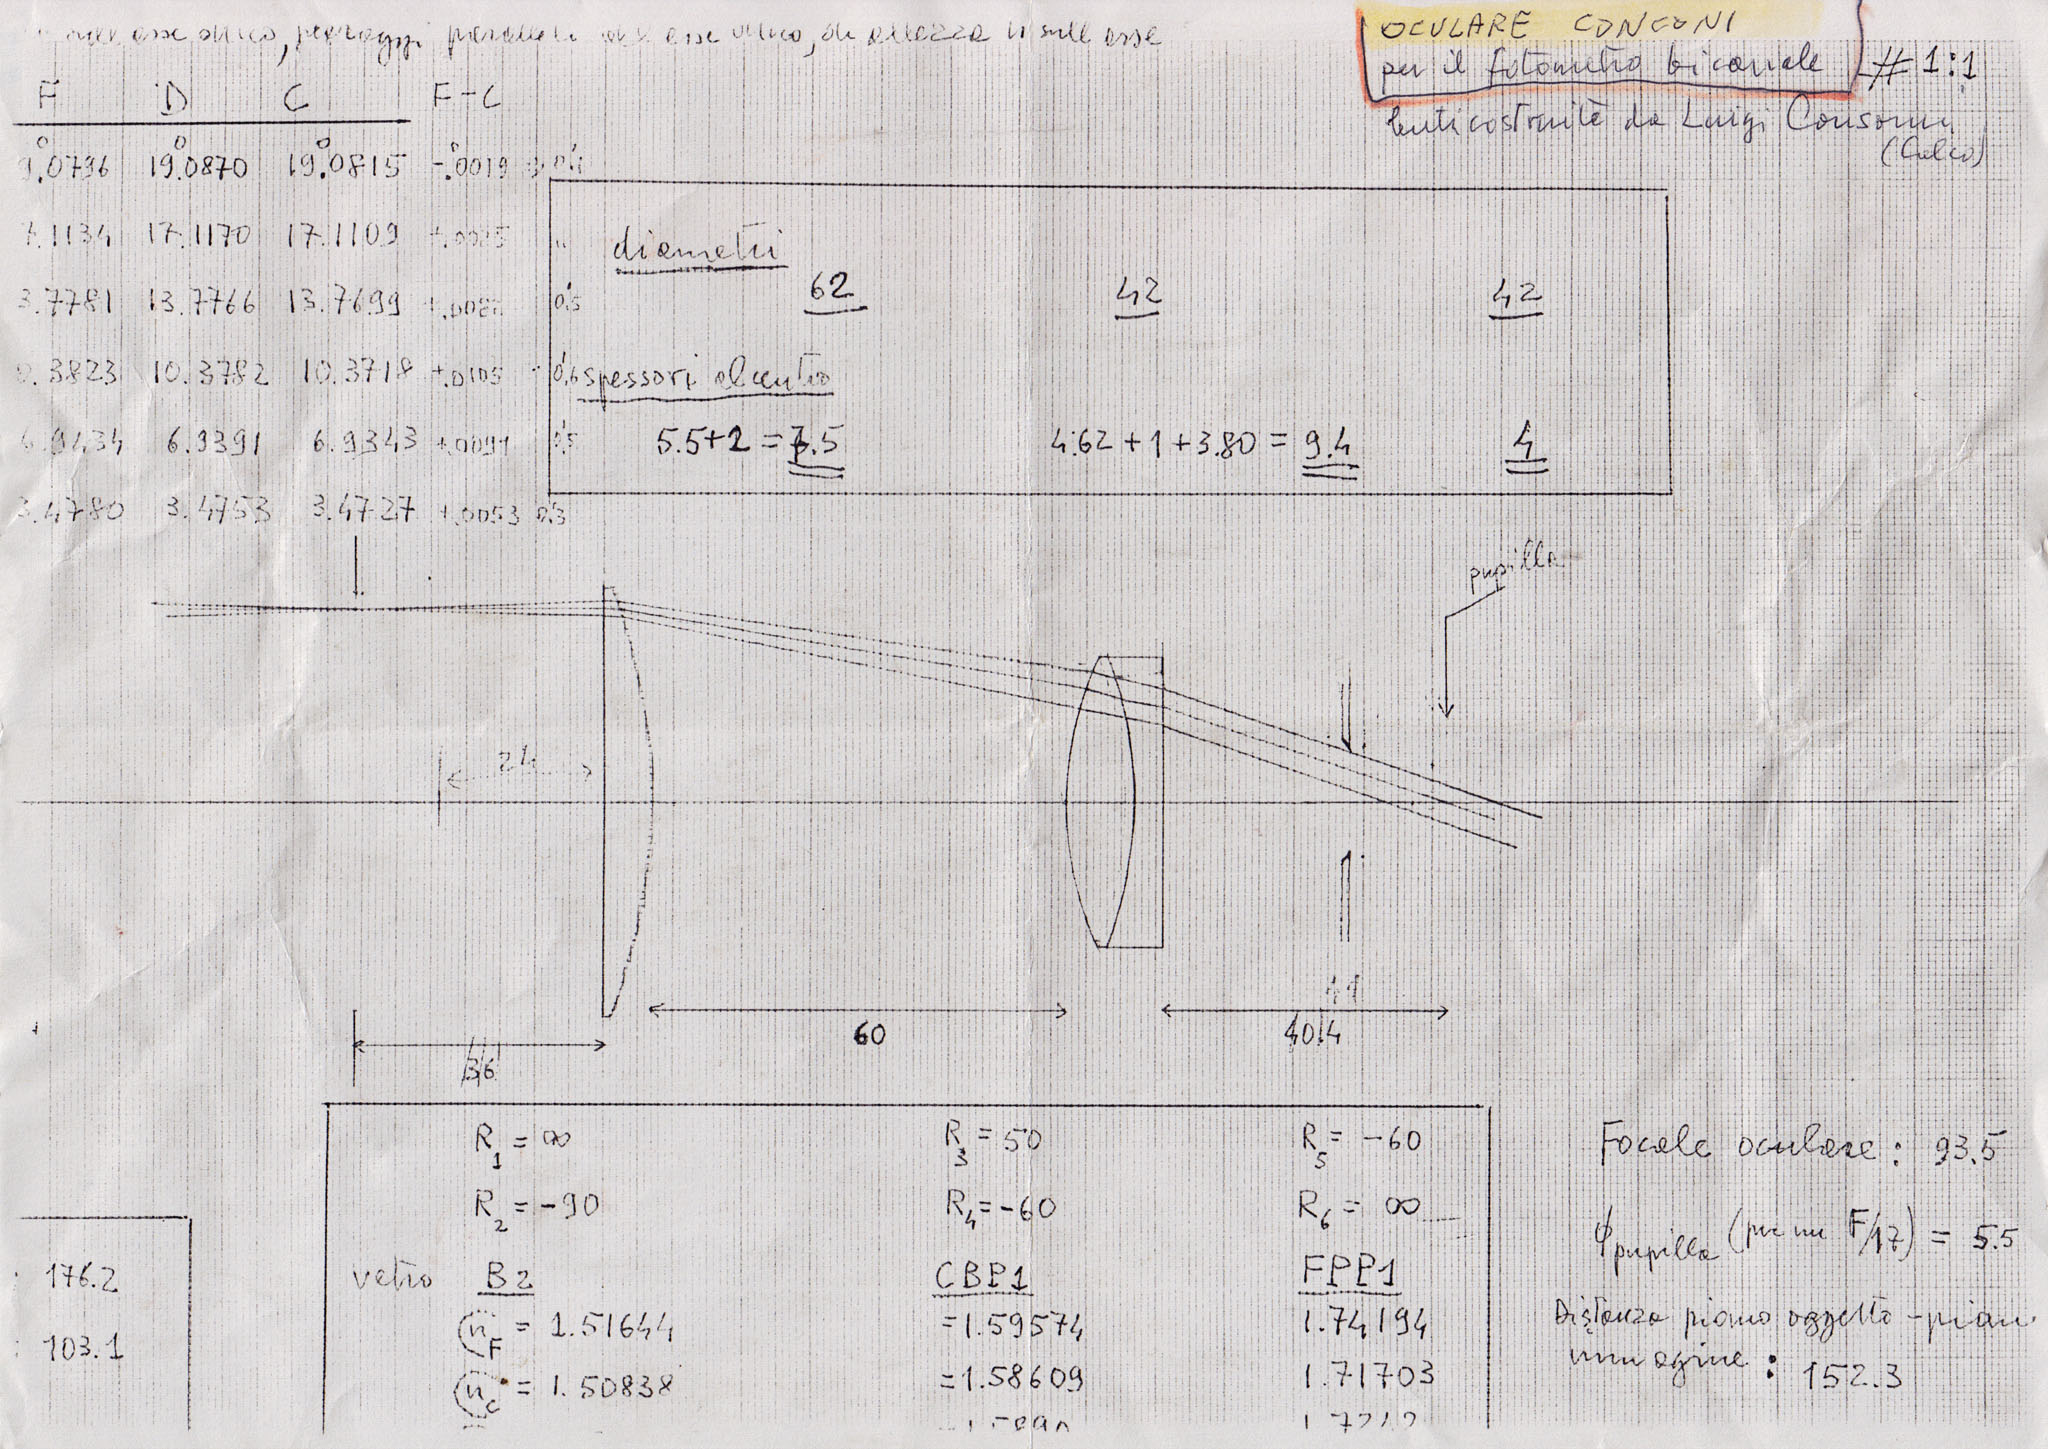 asse ottico, per raggi paralleli all'asse ottico, di altezza h sull'asse
OCULARE CONCONI
per il fotometro bicanale # 1:1
lenti costruite da Luigi Consonni
F D C F-C
9.0796 19.0870 19.0815 -.0019
7.1134 17.1170 17.1109 +.0025
3.7781 13.7766 13.7699
0.3823 10.3782 10.3718 +.0105 0.6
6.9434 6.9391 6.9343 +.0091 0.5
3.4780 3.4753 3.4727 +.0053 0.3
diametri
62 42 42
spessori al centro
5.5+2 = 7.5 4.62+1+3.80 = 9.4 4
pupilla
24
41
36 60 40.4
R1 = ∞ R3 = 50 R5 = -60
R2 = -90 R4 = -60 R6 = ∞
vetro B2 CBP1 FPP1
nF = 1.51644 =1.59574 1.74194
nC = 1.50838 =1.58609 1.71703
176.2
103.1
Focale oculare: 93.5
ϕ pupilla (per un F/17) = 5.5
Distanza piano oggetto - piano
immagine: 152.3